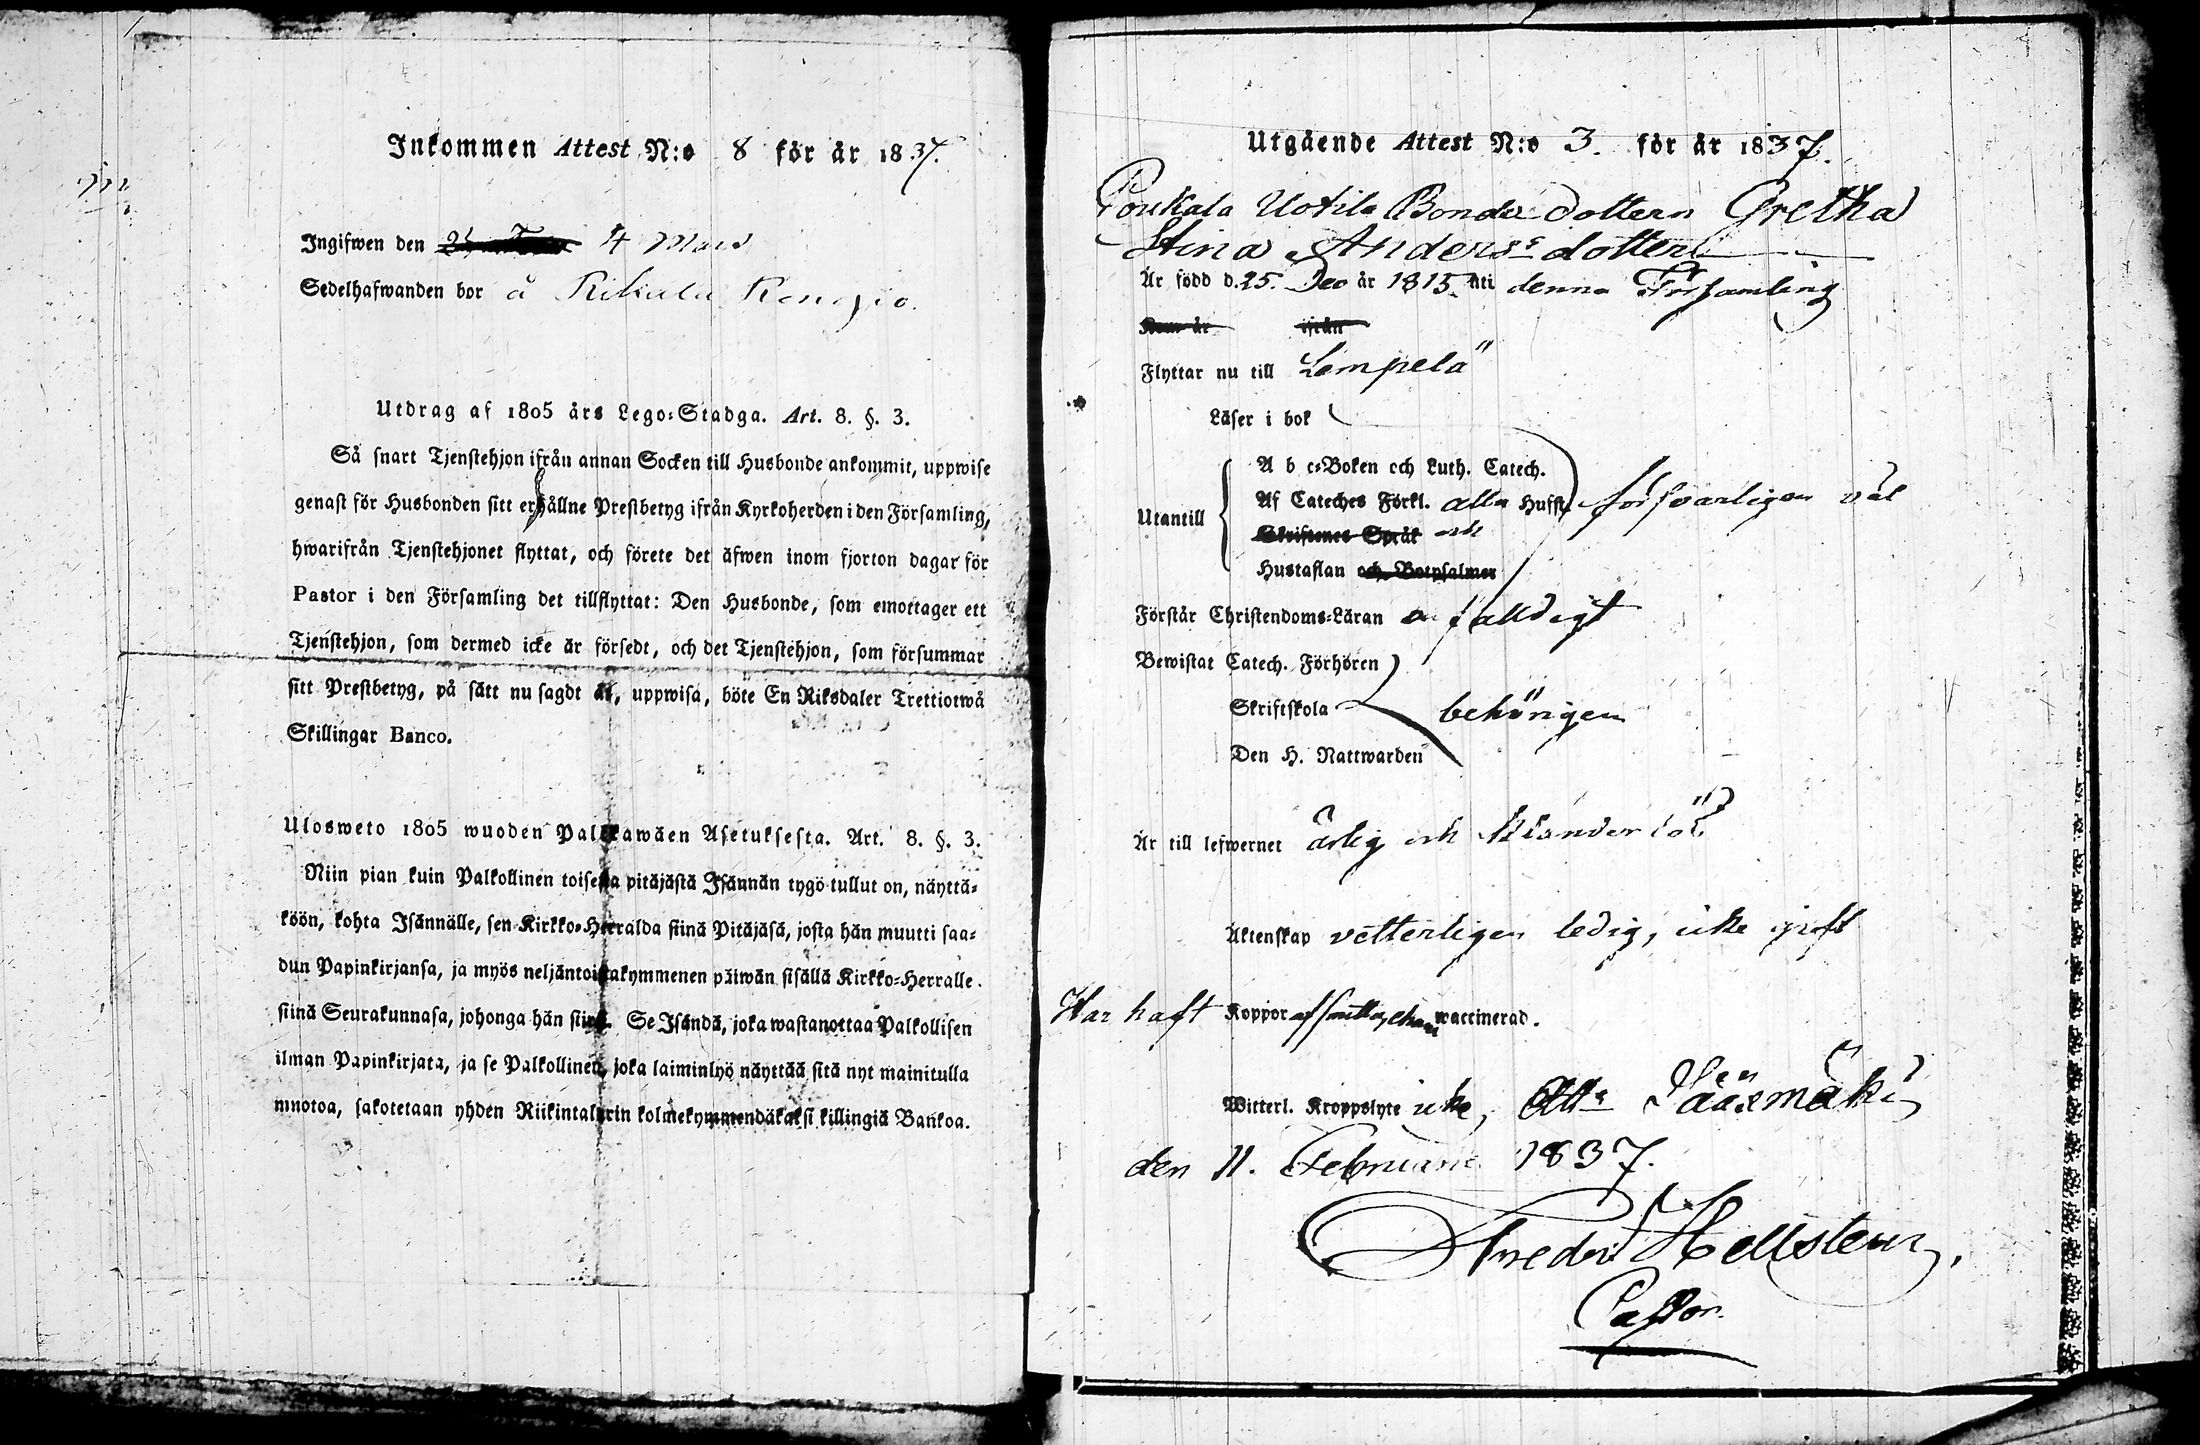 Inkommen Attest N:o 8 för år 1837.
Ingifwen den 4 Mars
Sedelhafwanden bor å
Utdrag af 1805 års Lego-Stadga. Art. 8. §. 3.
Så snart Tjenstehjon ifrån annan Socken till Husbonde ankommit, uppwise
genast för Husbonden sitt erhållne Prestbetyg ifrån Kyrkoherden i den Församling,
hwarifrån Tjenstehjonet flyttat, och förete det äfwen inom fjorton dagar för
Pastor i den Församling det tillflyttat: Den Husbonde, som emottager ett
Tjenstehjon, som dermed icke är försedt, och det Tjenstehjon, som försummar
sitt Prestbetyg, på sätt nu sagdt är, uppwisa, böte En Riksdaler Trettiotwå
Skillingar Banco.
Ulosweto 1805 wuoden Palkkawäen Asetuksesta. Art. 8. §. 3.
Niin pian kuin Palkollinen toisesta pitäjästä Isännän tygö tullut on, näyttä-
köön, kohta Isännälle, sen Kirkko-Herralda siinä Pitäjäsä, josta hän muutti saa-
dun Papinkirjansa, ja myös neljäntoistakymmenen päiwän sisällä Kirkko-Herralle.
siinä Seurakunnasa, johonga hän siirsi. Se Isändä, joka wastanottaa Palkollisen
ilman Papinkirjata, ja se Palkollinen, joka laiminlyö näyttää sitä nyt mainitulla
muotoa, sakotetaan yhden Riikintalarin kolmekymmendäkaksi killingiä Bankoa.
Utgående Attest N:o 3. för år 1837.
Uotila Bonde dottern Gretha
Stina Anders dotter
Är född d. 25. Dec år 1815. uti denna Församling
Kom år ifrån
Flyttar nu till Lempelä
Läser i bok
A b c-Boken och Luth. Catech.
Utantill Af Cateches Förkl. alla Hufst. försvarligen väl
Skriftenes Språk och
Hustaflan och Botpsalmer
Förstår Christendoms-Läran enfalldigt
Bewistat Catech. Förhören
Skriftskola behörigen
Den H. Nattwarden
Är till lefwernet ärlig och
Äktenskap vetterligen ledig, icke gift
Har haft Koppor waccinerad.
Witterl. Kroppslyte icke, Att:s Sääxmäki
den 11. Februarii 1837.
Fredr Hellsten,
Pastor.